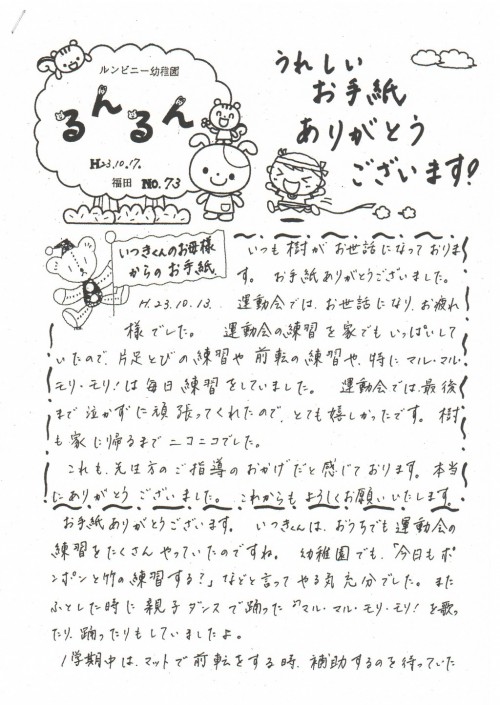 ルンビニー幼稚園
るんるん
H23.10.17.
福田 No.73
うれしい
お手紙
ありがとう
ございます!
いつきくんのお母様
からのお手紙
いつも樹がお世話になっておりま
す。お手紙ありがとうございました。
H.23.10.13. 運動会では、お世話になり、お疲れ
様でした。 運動会の練習を家でもいっぱいして
いたので、片足とびの練習や前転の練習や、特にマル・マル・
モリ・モリ!は毎日練習をしていました。 運動会では、最後
まで泣かずに頑張ってくれたので、とても嬉しかったです。樹
も家に帰るまでニコニコでした。
これも、先生方のご指導のおかげだと感じております。本当
にありがとうございました。これからもよろしくお願いいたします。
お手紙ありがとうございます。 いつきくんは、おうちでも運動会の
練習をたくさんやっていたのですね。 幼稚園でも、「今日もポ
ンポンと竹の練習する?」などと言ってやる気充分でした。また
ふとした時に親子ダンスで踊った『マル・マル・モリ・モリ!を歌っ
たり、踊ったりもしていましたよ。
1学期中は、マットで前転をする時、補助するのを待っていた